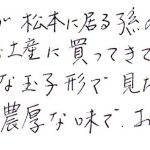 が 松本に居る孫の
お土産に 買ってきて
な玉子形で 見た
濃厚な味で、お